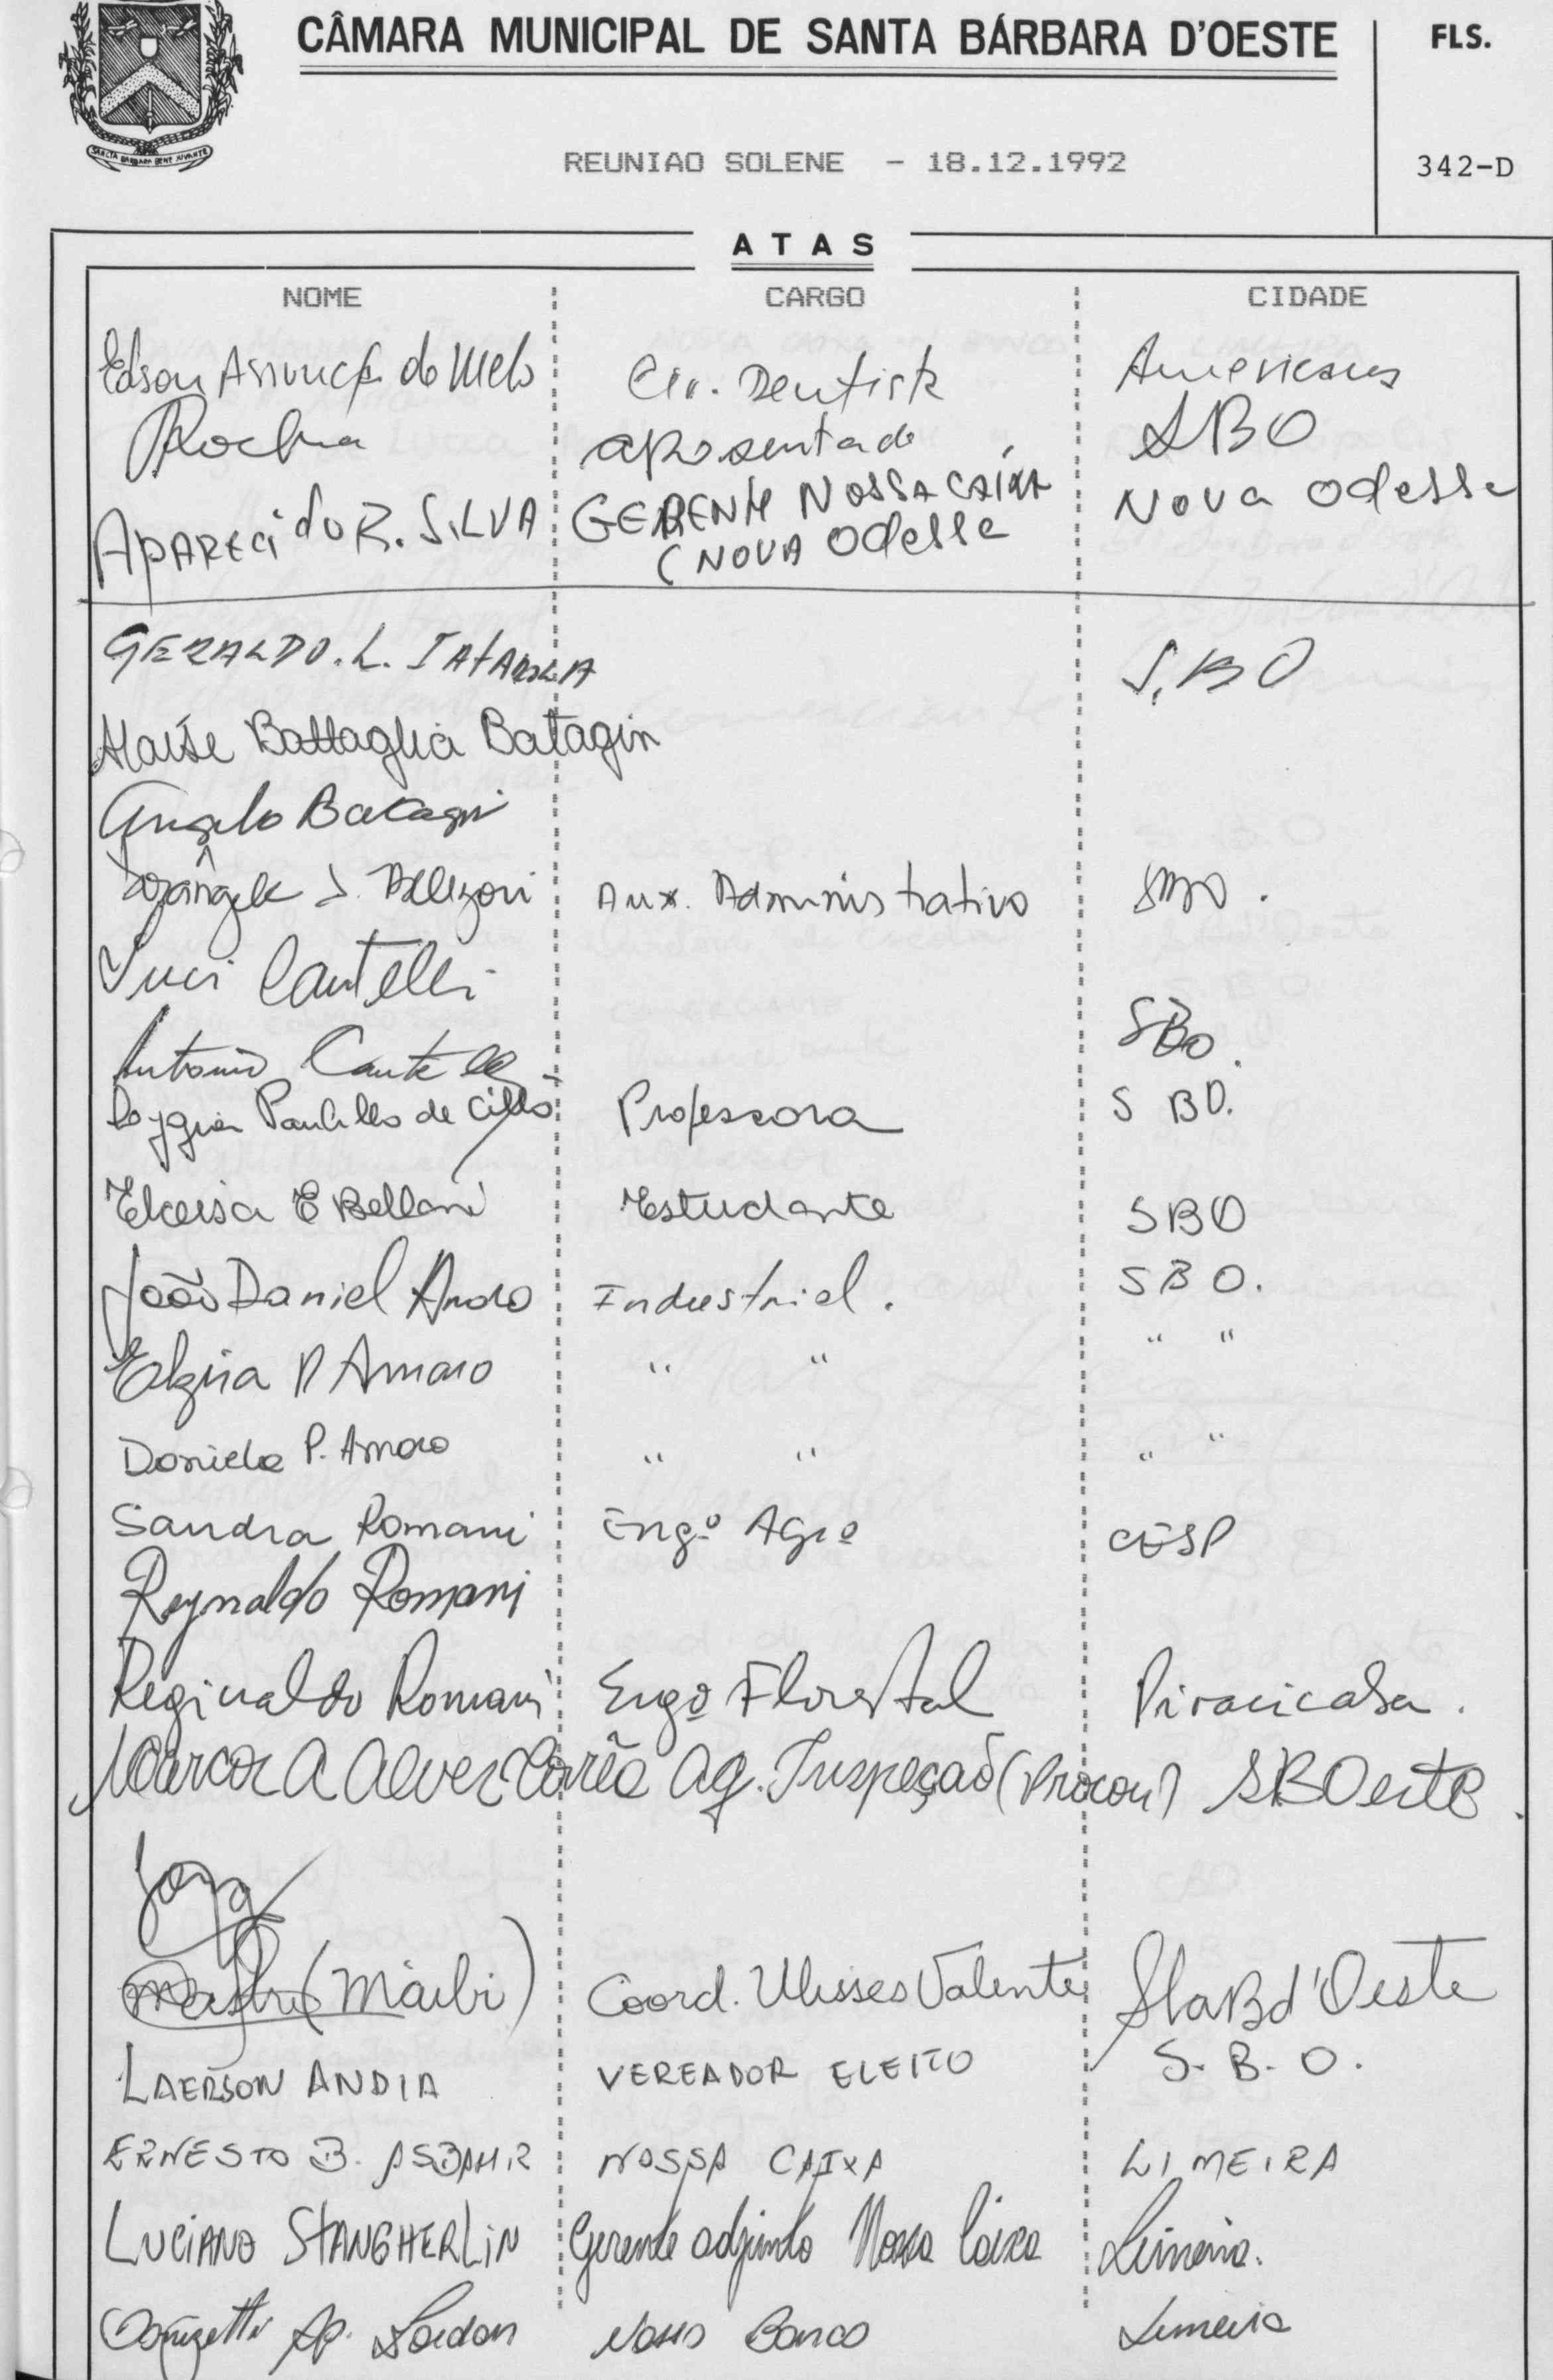 CÂMARA MUNICIPAL DE SANTA BÁRBARA D'OESTE
FLS.
SANCTA BARBARA BENE JUVANTE
REUNIAO SOLENE - 18.12.1992
342-D
ATAS
NOME CARGO CIDADE
Edson de Melo Cir. Dentista Americana
Rocha aposentado SBO
APARECido R. SILVA GERENTE NOSSA CAIXA Nova Odessa
(NOVA Odessa
GERALDO. L. S.BO
Battaglia Batagin
Angelo Batagin
Aux. Administrativo SBO.
Luci Cantelli
Antonio Cantelli SBO.
Lyggia de Cillo Professora S BO.
Eloisa E Bellani Estudante SBO
João Daniel Industrial. SBO.
Elzira P Amaro " " " "
Daniela P. Amaro " " " "
Sandra Romani Engº Agrº CESP
Reynaldo Romani
Reginaldo Romani Engº Florestal Piracicaba.
Marcos A Alves Corrêa Ag. Inspeção (Procon) SBOeste.
(Maibi) Coord. Ulisses Valente Sta Bd'Oeste
LAERSON ANDIA VEREADOR ELEITO S. B. O.
ERNESTO B. NOSSA CAIXA LIMEIRA
LUCIANO STANGHERLIN Gerente adjunto Nossa Caixa Limeira.
Ap. Banco Limeira